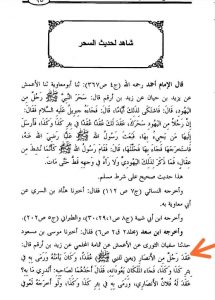 شاهد لحديث السحر
قال الإمام أحمد رحمه الله (ج٤ ص٣٦٧): ثنا أبومعاوية ثنا الأعمش
عن يزيد بن حيان عن زيد بن أرقم قال: سحر النبي ﷺ رجل من
اليهود، قال: فاشتكى لذلك أيامًا، قال: فجاءه جبريل عليه السلام فقال:
إن رجلًا من اليهود سحرك، عقد لك عقدًا في بئر كذا وكذا، فأرسل
إليها من يجيء بها، فبعث رسول الله ﷺ عليًّا رضي الله عنه،
فاستخرجها فجاء بها فحللها، قال: فقام رسول الله ﷺ كأنما نشط من
عقال، فما ذكر لذلك اليهودي ولا رآه في وجهه قط حتى مات.
هذا حديث صحيح على شرط مسلم.
وأخرجه النسائي (ج٧ ص١١٢) فقال: أخبرنا هناد بن السري عن
أبي معاوية به.
وأخرجه ابن أبي شيبة (ج٨ ص٢٩،٣٠)، والطبراني (ج٥ ص٢٠٢).
وأخرجه ابن سعد ص٦) فقال: أخبرنا موسى بن مسعود
حدثنا سفيان الثوري عن الأعمش عن ثمامة المحلمي عن زيد بن أرقم قال:
عقد رجل من الأنصار (يعني للنبي ﷺ) عقدًا، وكان يأمنه ورمى به في
بئر كذا وكذا، فجاء الملكان يعودانه، فقال أحدهما لصاحبه: أتدري ما به؟
عقد له فلان الأنصاري، ورمى به في بئر كذا وكذا، ولو أخرجه لعوفي